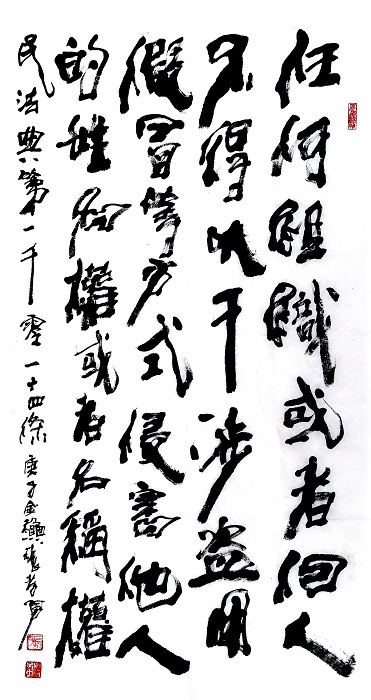 任何組織或者個人
不得以干涉盗用
假冒等方式侵害他人
的姓名權或者名稱權
民法典第一千零一十四條 庚子